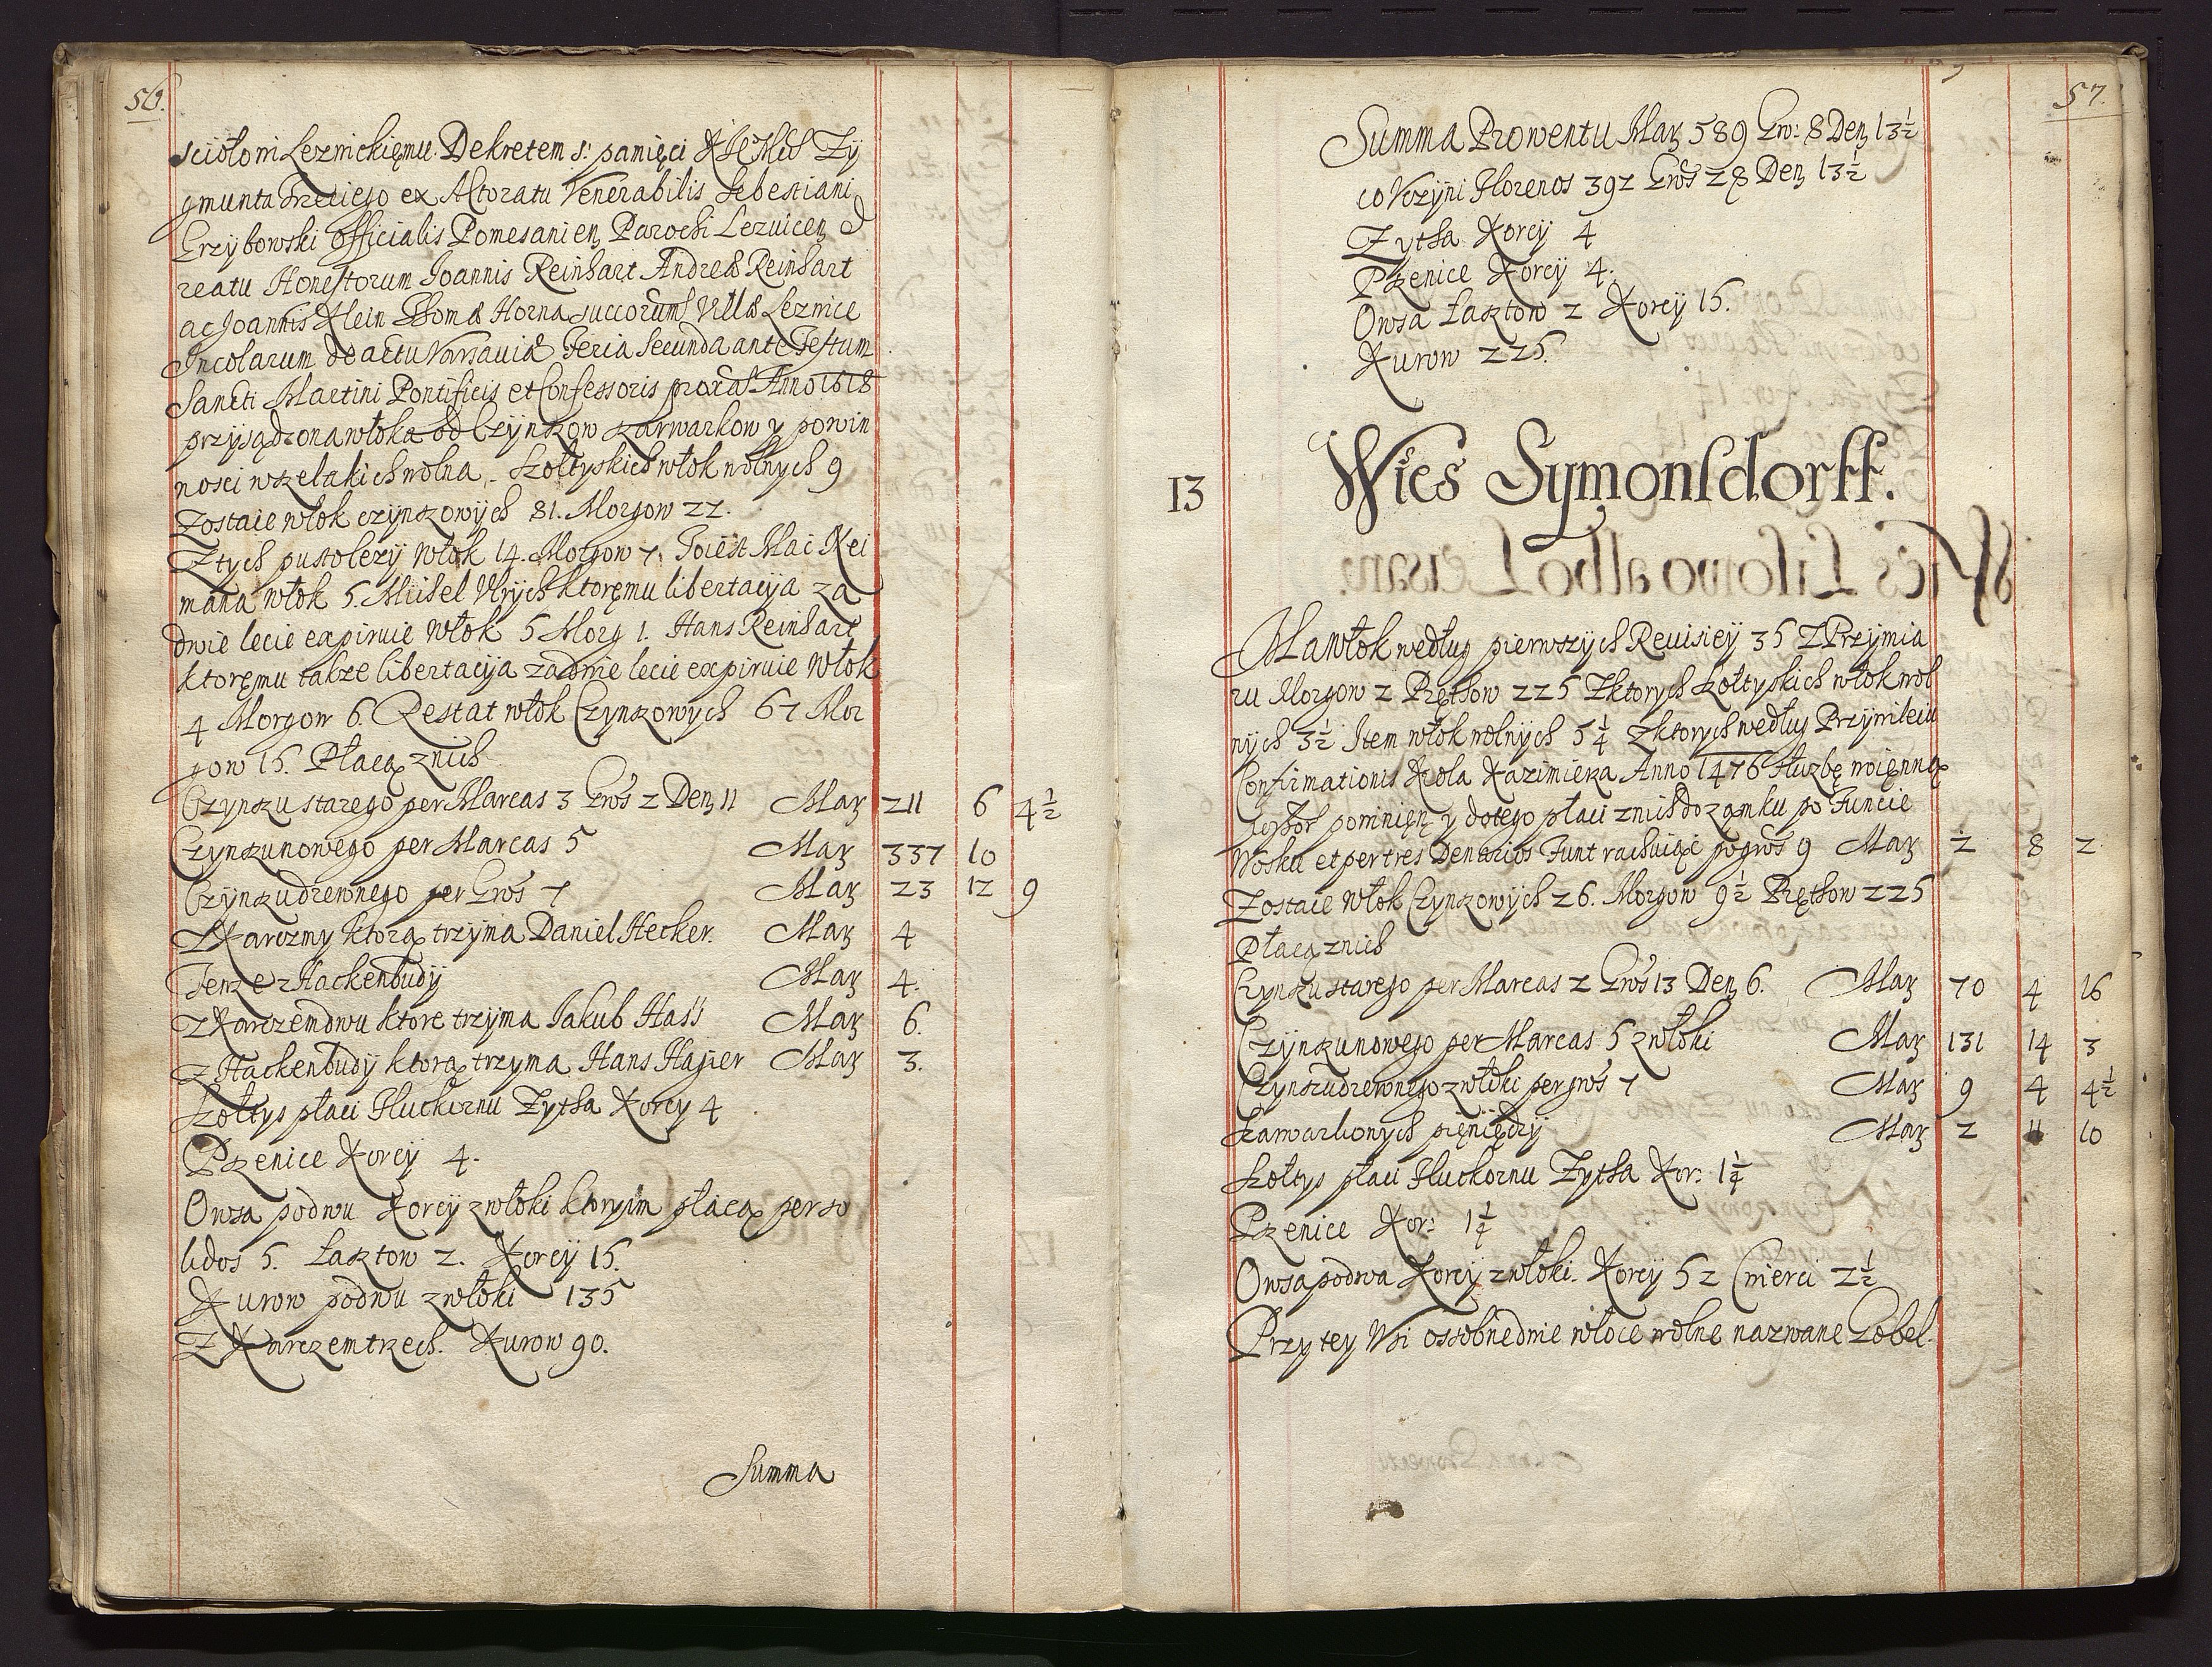 56.
sciołowi Leznickięmu. Dekretem s: pamięci KJEMCi Zy
gmunta Trzeciego ex Actoratu Venerabilis Sebestiani
Grzybowski Officialis Pomesanien Parochi Leznicen d
reatu Honestorum Joannis Reinhart Andreæ Reinhart
ac Joannis Klein Thomæ Horna succorum Villæ Leznice
Incolarum de actu Varsauiæ Feria Secunda ante Festum
Sancti Martini Pontificis et Confessoris prox: Anno 1618
przysądzona włoka od Czynszow szarwarkow y powin
nosci wszelakich wolna, Szołtyskich włok wolnych 9
Zostaie włok czynszowych 81. Morgow 22.
Z tych pusto lezy Włok 14. Morgow 7. To iest Mac Kei
mana włok 5. Michel Vlrych ktoręmu libertacyia za
dwie lecie expiruie Włok 5 Morg 1. Hans Reinhart
ktoręmu takze libertacyia za dwie lecie expiruie Włok
4 Morgow 6. Restat włok Czynszowych 67 Mor
gow 15. Płacą z nich
Czynszu starego per Marcas 3 Gros 2 Den 11 Mar 211 6 4½
Czynszu nowego per Marcas 5 Mar 337 10
Czynszu drewnego per Gros 7 Mar 23 12 9
Z Karczmy ktorą trzyma Daniel Hecker. Mar 4
Tenze z Hackenbudy Mar 4.
Z Karczem dwu ktore trzyma Jakub Hass Mar 6.
z Hackenbudy ktorą trzyma Hans Hayier Mar 3.
Szołtys płaci Pluckornu Zytha Korcy 4
Pszenice Korcy 4.
Owsa po dwu Korcy z włoki ktorym płacą per so
lidos 5. Łasztow 2. Korcy 15.
Kurow po dwu z włoki 135
Z Karczem trzech. Kurow 90.
Summa
57.
Summa Prowentu Mar 589 Gro: 8 Den 13½
co Vczyni Florenos 392 Gros 28 Den 13½
Zytha Korcy 4
Pszenice Korcy 4.
Owsa Łasztow 2 Korcy 15.
Kurow 225.
13 Wies Symonsdorff.
Ma Włok według pierwszych Reuisiey 35 Z Przymia
ru Morgow 2 Pręthow 225 Z ktorych Szołtyskich włok wol
nych 3½ Item włok wolnych 5¼ Z ktorych według Przywileiu
Confirmationis Krola Kazimierza Anno 1476 służbę woięnną
powinięn y do tego płaci z nich do zamku po Funcie
Wosku et per tres Denarios Funt rachuiąc po gros 9 Mar 2 8 2
Zostaie Włok Czynszowych 26. Morgow 9½ Pręthow 225
Płacą z nich
Czynszu starego per Marcas 2 Gros 13 Den 6. Mar 70 4 16
Czynszu nowego per Marcas 5 z włoki Mar 131 14 3
Czynszu drewnego z włoki per gros 7 Mar 9 4 4½
Szarwarkowych pięniędzy Mar 2 11 10
Szołtys płaci Pluckornu Zytha Kor: 1¼
Pszenice Kor: 1¼
Owsa po dwa Korcy z włoki. Korcy 52 Cwierci 2½
Przy tey Wsi ossobne dwie włoce wolne nazwane Gobel.